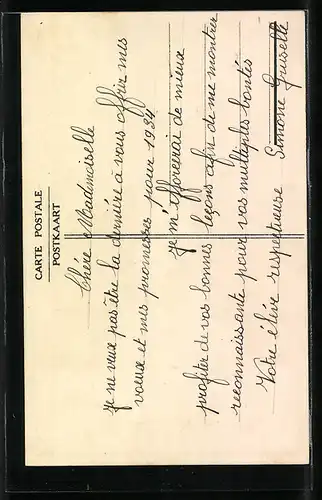 CARTE POSTALE
POSTKAART
Chère Mademoiselle
Je ne veux pas être la dernière à vous offrir mes
vœux et mes promesses pour 1934.
Je m'efforcerai de mieux
profiter de vos bonnes leçons afin de me montrer
reconnaissante pour vos multiples bontés
Votre élève respectueuse
Simone